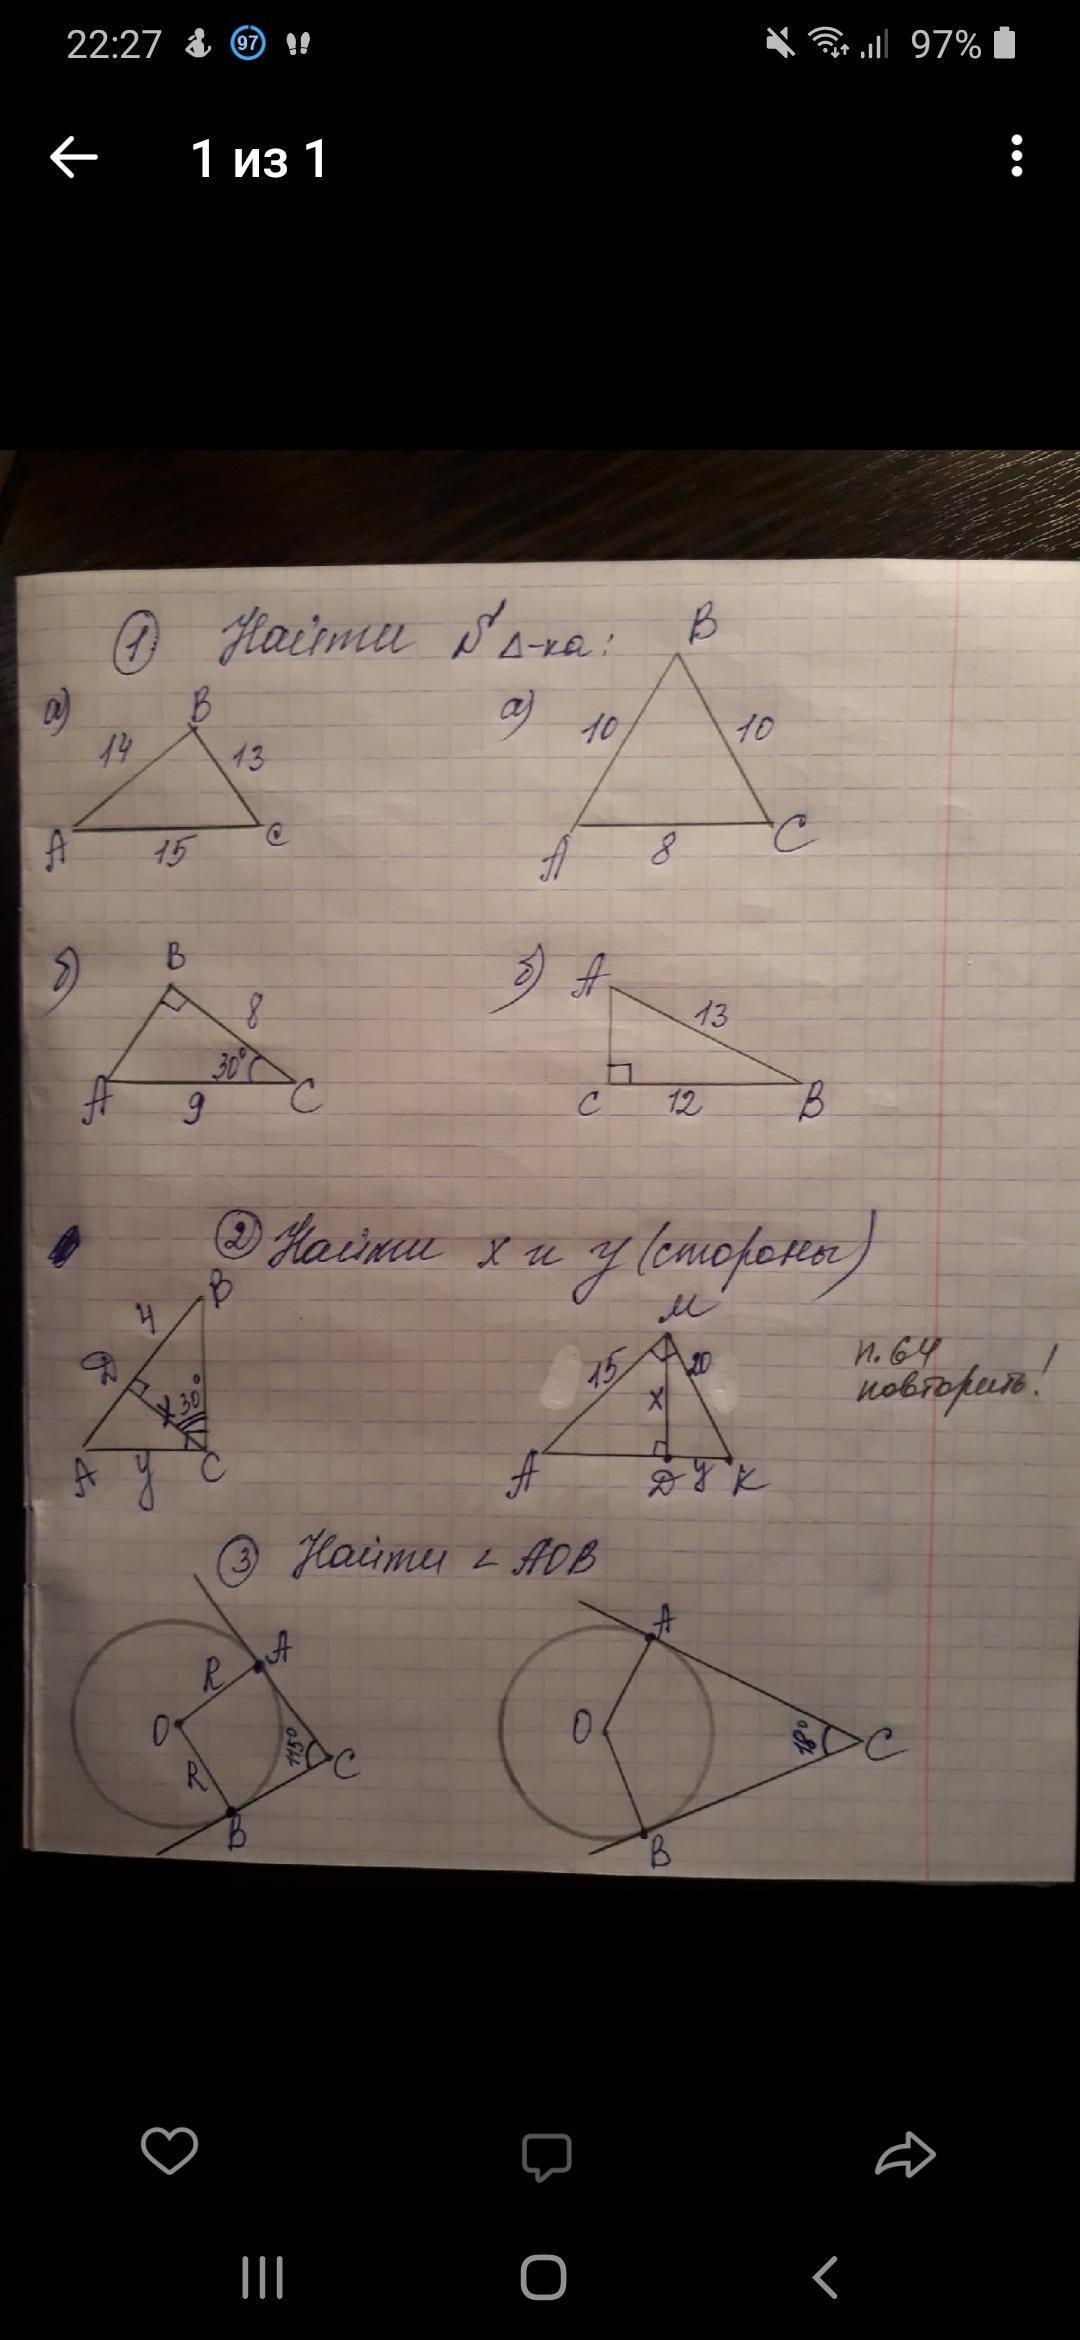 22:27 97 97%
1 из 1
① Найти S Δ-ка:
а) B 14 13 A 15 C
а) B 10 10 A 8 C
б) B 8 30° A 9 C
б) A 13 C 12 B
② Найти x и y (стороны)
B 4 D x 30° A y C
M 15 20 x A D y K
п. 64
повторить!
③ Найти ∠ AOB
A R O R B C
A O B C